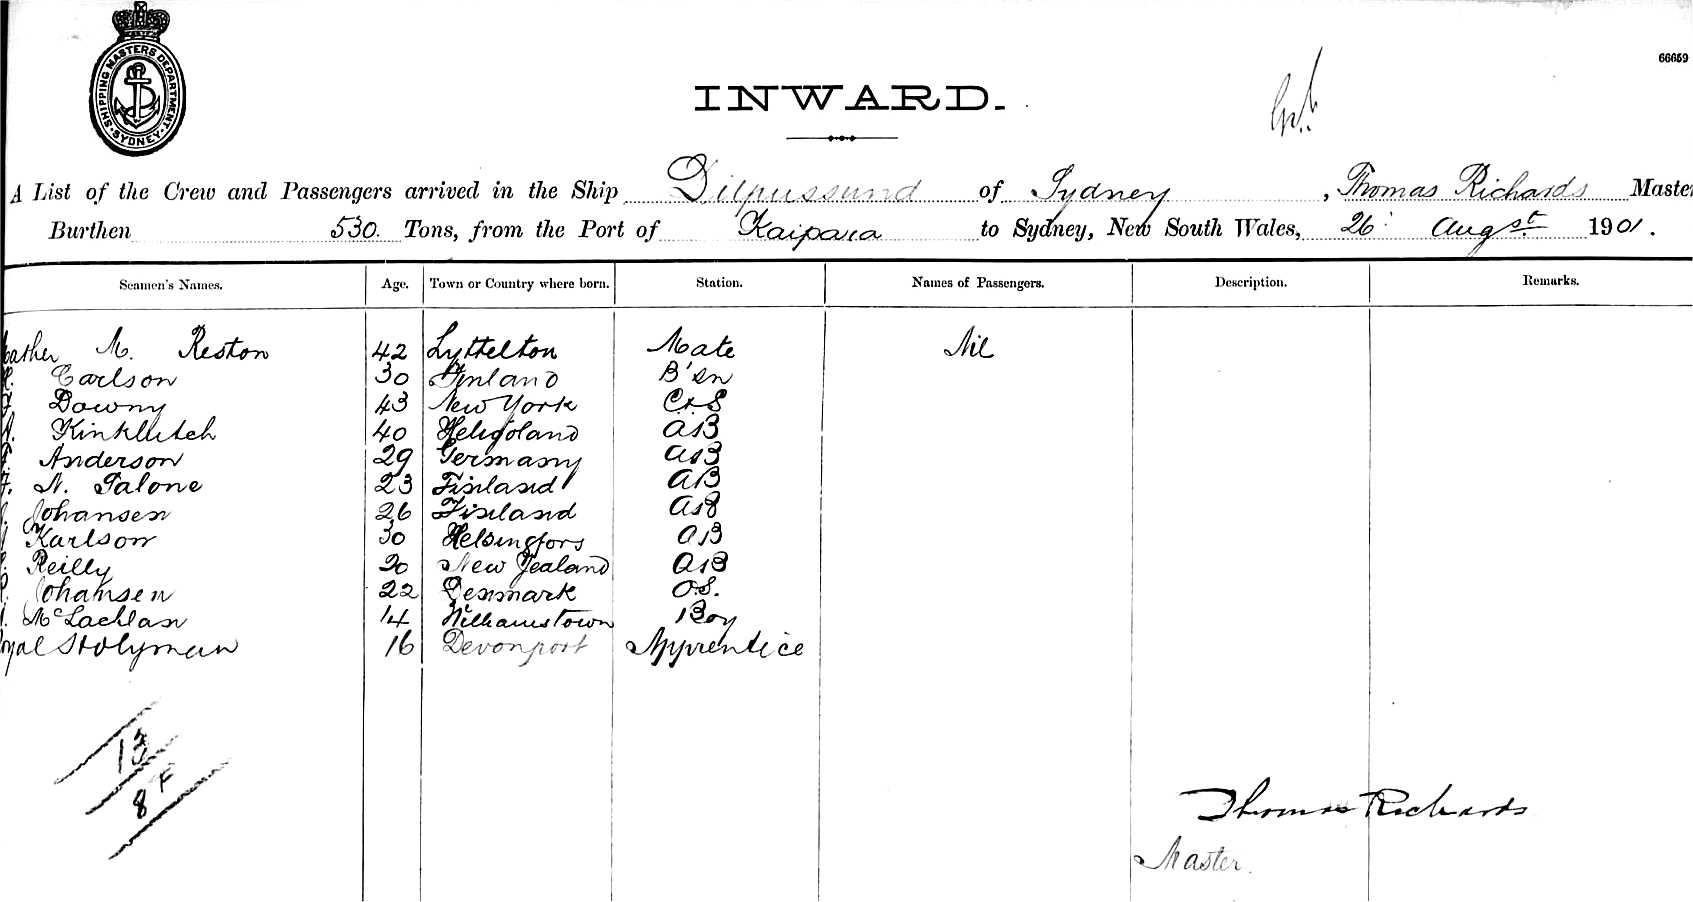 SHIPPING MASTERS DEPARTMENT
SYDNEY
66659
INWARD.
A List of the Crew and Passengers arrived in the Ship Dilpussund of Sydney, Thomas Richards Master
Burthen 530. Tons, from the Port of Kaipara to Sydney, New South Wales, 26 Augst. 1901.
Seamen's Names. Age. Town or Country where born. Station. Names of Passengers. Description. Remarks.
M. Reston 42 Lyttelton Mate Nil
Carlson 30 Finland B'sn
Downy 43 New York C&S
Kinklutch 40 Heligoland AB
Anderson 29 Germany AB
N. Talone 23 Finland AB
Johansen 26 Finland AB
Karlson 30 Helsingfors AB
Reilly 20 New Zealand AB
Johansen 22 Denmark O.S.
McLachlan 14 Williamstown Boy
16 Devonport Apprentice
13
8 F
Thomas Richards
Master.